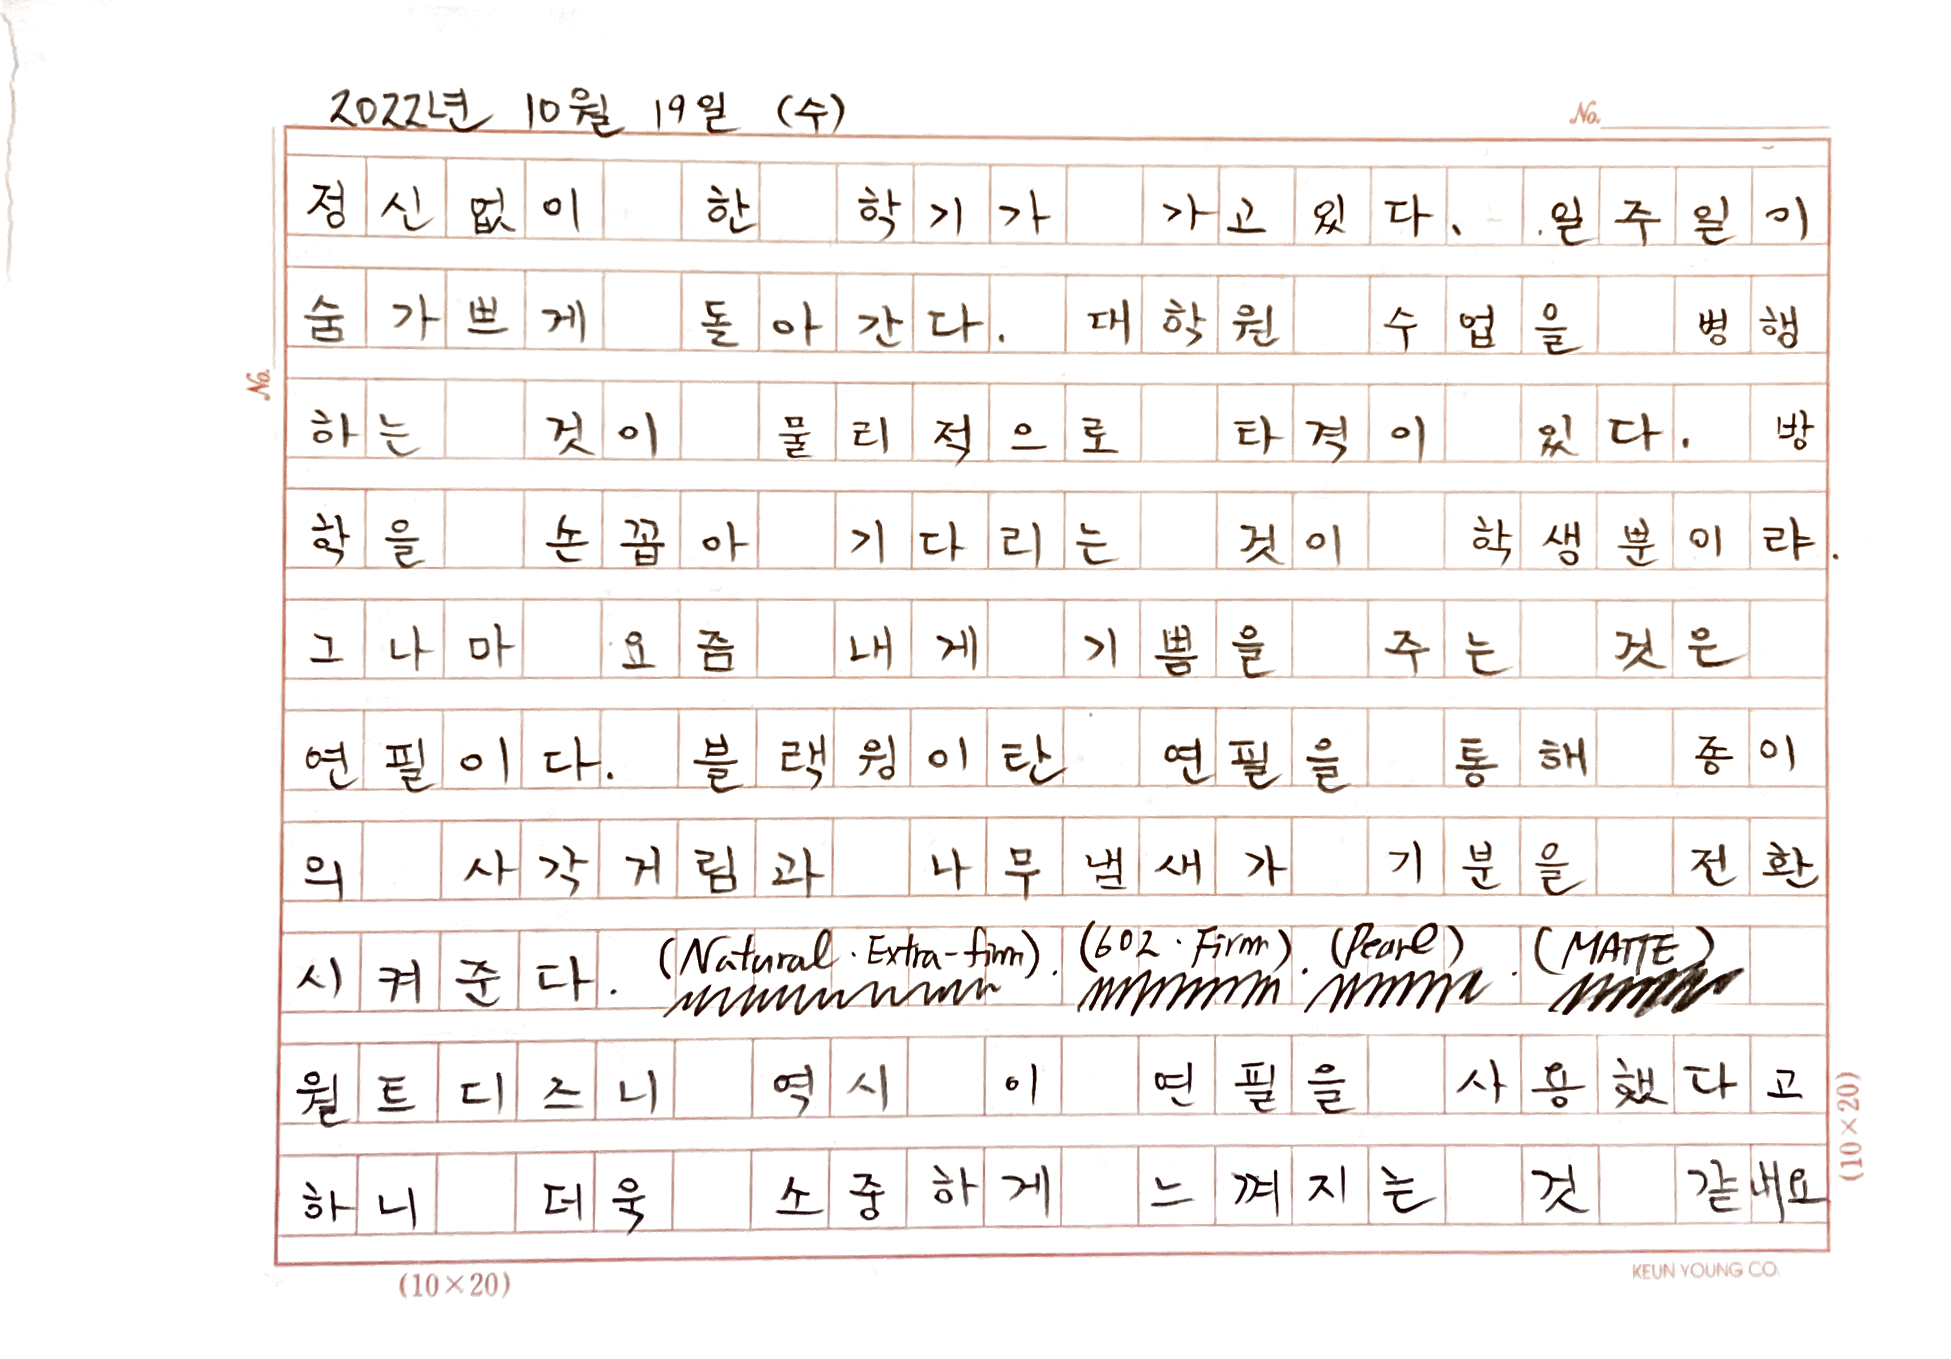 2022년 10월 19일 (수)
No.
정신없이 한 학기가 가고 있다. 일주일이
숨가쁘게 돌아간다. 대학원 수업을 병행
No.
하는 것이 물리적으로 타격이 있다. 방
학을 손꼽아 기다리는 것이 학생뿐이랴.
그나마 요즘 내게 기쁨을 주는 것은
연필이다. 블랙윙이란 연필을 통해 종이
의 사각거림과 나무냄새가 기분을 전환
시켜준다. (Natural · Extra-firm). (602 · Firm). (Pearl). (MATTE)
월트디즈니 역시 이 연필을 사용했다고
하니 더욱 소중하게 느껴지는 것 같내요
(10×20)
(10×20)
KEUN YOUNG CO.